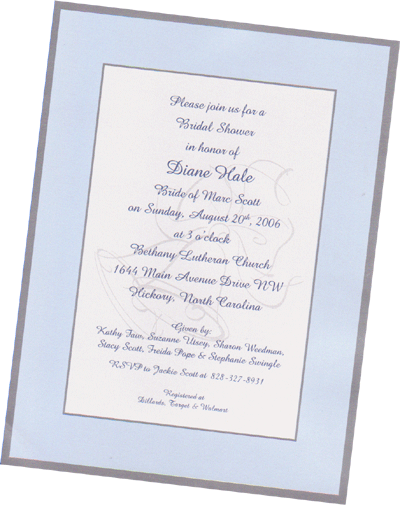 Please join us for a
Bridal Shower
in honor of
Diane Hale
Bride of Marc Scott
on Sunday, August 20th, 2006
at 3 o'clock
Bethany Lutheran Church
1644 Main Avenue Drive NW
Hickory, North Carolina
Given by:
Kathy Fair, Suzanne Utsey, Sharon Weedman,
Stacy Scott, Freida Pope & Stephanie Swingle
RSVP to Jackie Scott at 828-327-8931
Registered at
Dillards, Target & Walmart